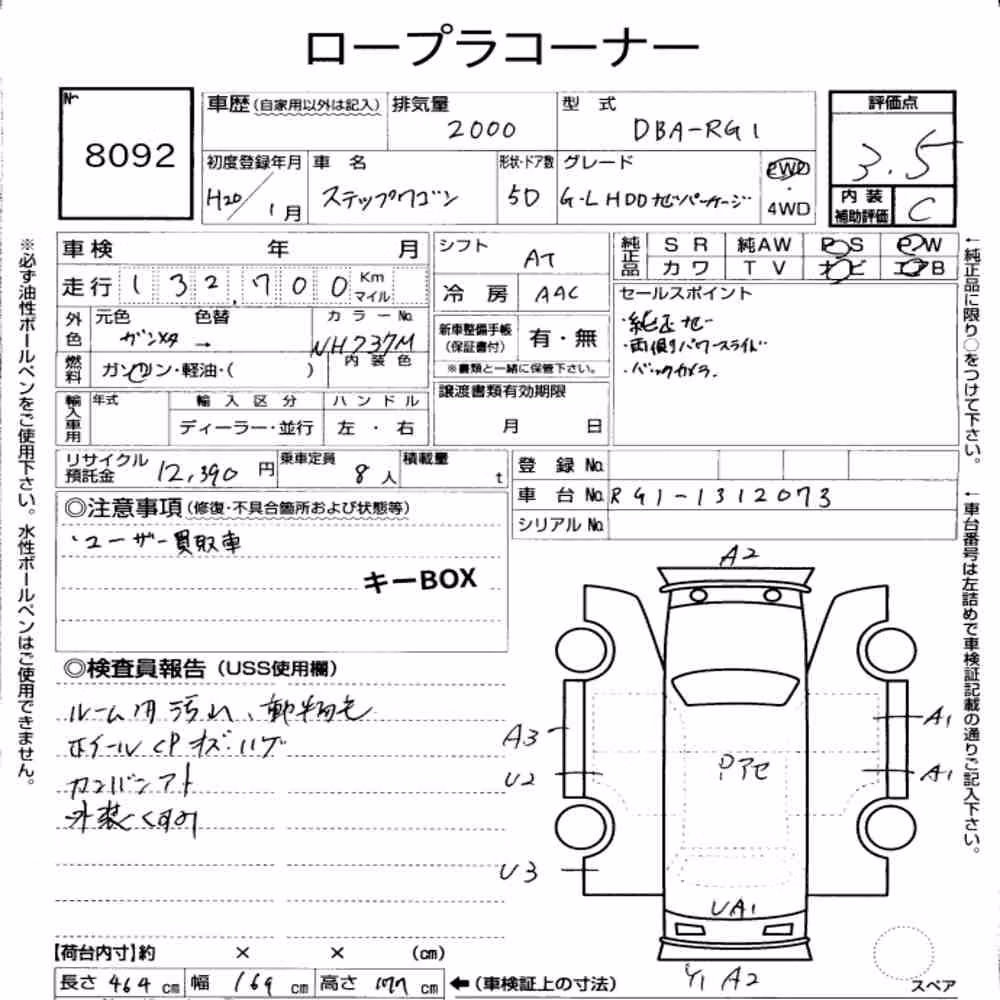 ロープラコーナー
No
8092
車歴(自家用以外は記入)
排気量
2000
型 式
DBA-RG1
評価点
3.5
初度登録年月
H20/1月
車 名
ステップワゴン
形状・ドア数
5D
グレード
G・L HDDナビパッケージ
2WD
・
4WD
内装
補助評価
C
車検 年 月
走行 132,700 Km
マイル
外色
元色 色替 カラーNo.
ガンメタ → NH737M
燃料
ガソリン・軽油・( )
内装色
輸入車用
年式
輸入区分
ハンドル
ディーラー・並行
左・右
シフト
AT
冷房
AAC
新車整備手帳
(保証書付)
有・無
※書類と一緒に保管下さい。
譲渡書類有効期限
月 日
純正品
SR 純AW PS PW
カワ TV ナビ エアB
セールスポイント
・純正ナビ
・両側パワースライド
・バックカメラ.
リサイクル
預託金
12,390円
乗車定員
8人
積載量
t
登録No.
車台No. RG1-1312073
シリアルNo.
◎注意事項(修復・不具合箇所および状態等)
・ユーザー買取車
キーBOX
◎検査員報告(USS使用欄)
ルーム内汚れ、動物毛
ホイールCPキズ・ハゲ
カンバンアト
外装くすみ
A2
A3
U2
U3
A1
A1
Pアセ
UA1
Y1 A2
スペア
【荷台内寸】約 × × (cm)
長さ 464 cm 幅 169 cm 高さ 177 cm ←(車検証上の寸法)
※必ず油性ボールペンをご使用下さい。水性ボールペンはご使用できません。
←純正品に限り○をつけて下さい。
←車台番号は左詰めで車検証記載の通りご記入下さい。